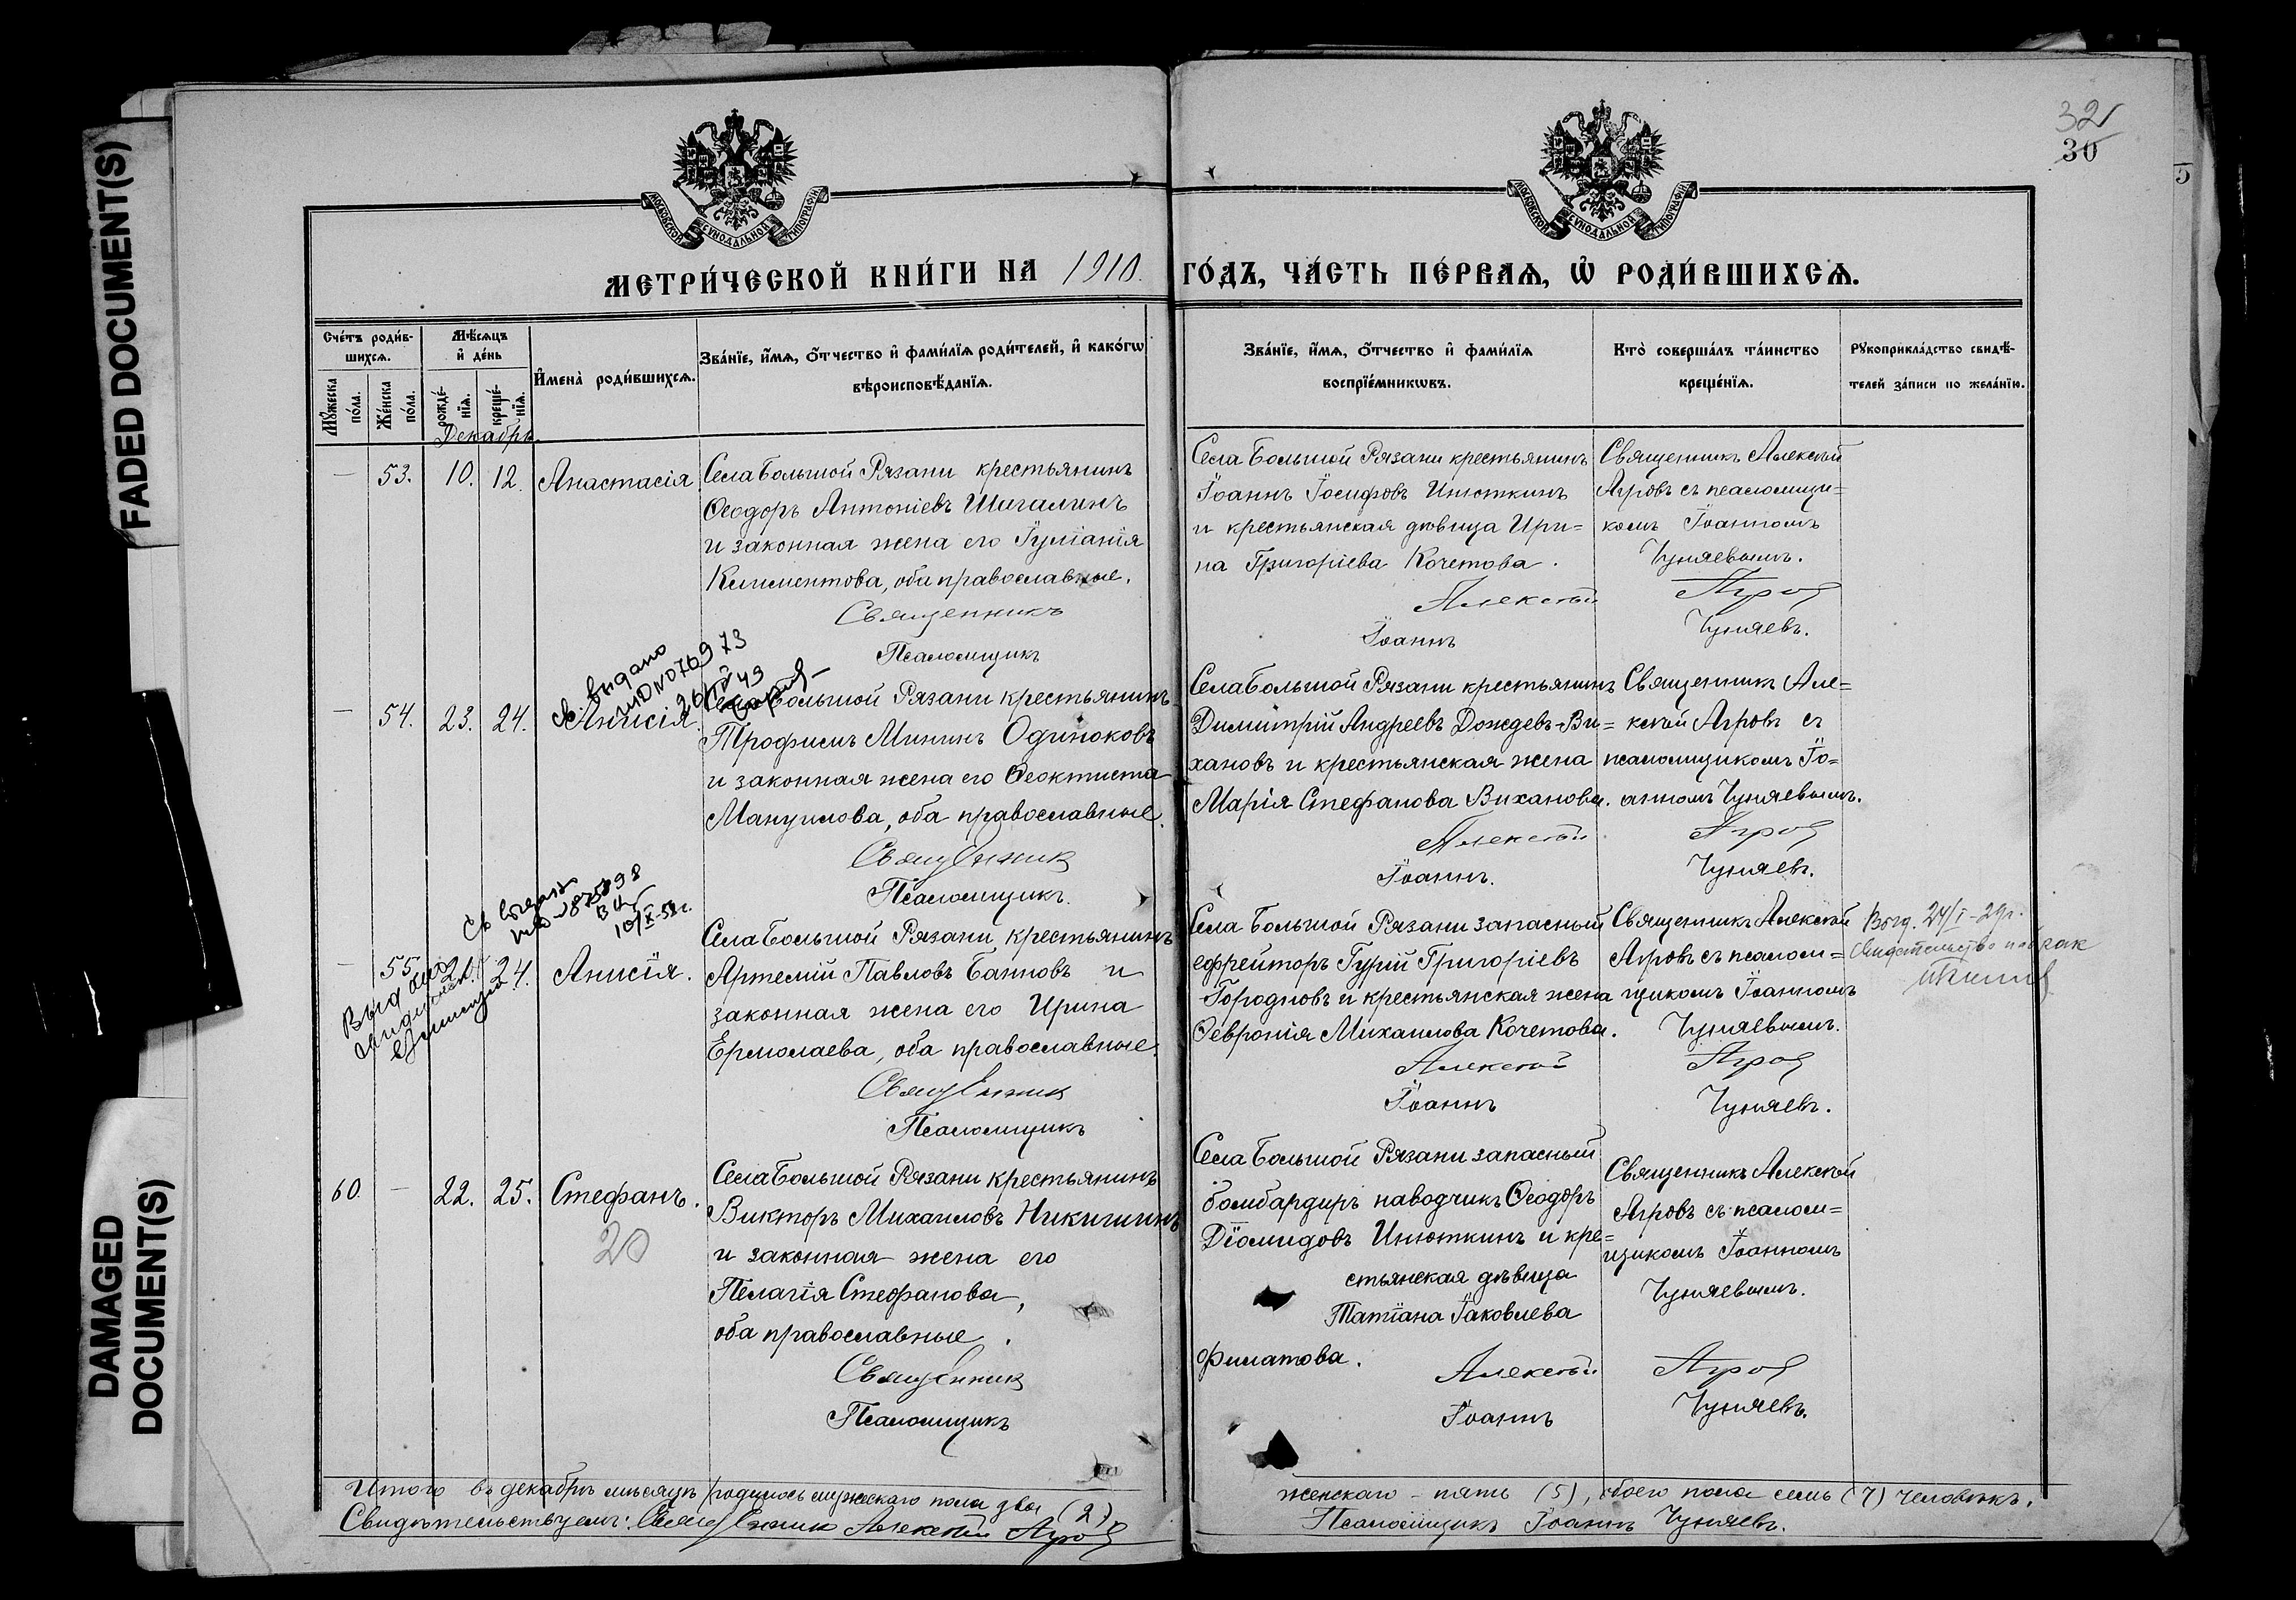 FADED DOCUMENT(S)
DAMAGED
DOCUMENT(S)
32
30
5
МОСКОВСКОЙ СѴНОДАЛЬНОЙ ТИПОГРАФІИ
МОСКОВСКОЙ СѴНОДАЛЬНОЙ ТИПОГРАФІИ
МЕТРИ́ЧЕСКОЙ КНИ́ГИ НА 1910 ГО́ДЪ, ЧА́СТЬ ПЕ́РВАѦ, Ѽ РОДИ́ВШИХСѦ.
Сче́тъ роди́в-
шихсѧ.
Мꙋ́жеска по́ла.
Же́нска по́ла.
Мѣ́сѧцъ
и҆ де́нь
рожде́-
нїѧ.
креще́-
нїѧ.
И҆мена̀ роди́вшихсѧ.
Зва́нїе, и҆́мѧ, ѻ҆́тчество и҆ фами́лїѧ роди́телей, и҆ како́гѡ
вѣроисповѣ́данїѧ.
Зва́нїе, и҆́мѧ, ѻ҆́тчество и҆ фами́лїѧ
воспрїе́мникѡвъ.
Кто̀ соверша́лъ та́инство
креще́нїѧ.
Рꙋкоприкла́дство свидѣ́-
телей за́писи по жела́нїю.
Декабрь.
— 53. 10. 12. Анастасія
Села Большой Рязани крестьянинъ
Ѳеодоръ Антоніевъ Шигалинъ
и законная жена его Іуліанія
Климентова, оба православные.
Священникъ
Псаломщикъ
Села Большой Рязани крестьянинъ
Іоаннъ Іосифовъ Инюткинъ
и крестьянская дѣвица Ири=
на Григоріева Кочетова.
Алексѣй
Іоаннъ
Священникъ Алексѣй
Агровъ съ псаломщи=
комъ Іоанномъ
Чуняевымъ.
Агров
Чуняевъ.
св. выдано
ШО № 076973
26/IV 49
— 54. 23. 24. Анисія.
Села Большой Рязани крестьянинъ
Трофимъ Мининъ Одиноковъ
и законная жена его Ѳеоктиста
Мануилова, оба православные.
Священник
Псаломщикъ.
Села Большой Рязани крестьянинъ
Димитрій Андреевъ Дождевъ-Ви=
хановъ и крестьянская жена
Марія Стефанова Виханова.
Алексѣй
Іоаннъ.
Священникъ Але=
ксѣй Агровъ съ
псаломщикомъ Іо=
анномъ Чуняевымъ.
Агров
Чуняевъ.
Св выдано
10/IX-52г.
— 55 24. Анисія.
Села Большой Рязани, крестьянинъ
Артемій Павловъ Банновъ и
законная жена его Ирина
Ермолаева, оба православные.
Священник
Псаломщикъ
Села Большой Рязани запасный
ефрейторъ Гурій Григоріевъ
Городновъ и крестьянская жена
Февронія Михаилова Кочетова.
Алексѣй
Іоаннъ
Священникъ Алексѣй
Агровъ съ псалом=
щикомъ Іоанномъ
Чуняевымъ.
Агров
Чуняевъ.
24/I-29г.
свидетельство на брак
60. — 22. 25. Стефанъ.
20
Села Большой Рязани крестьянинъ
Викторъ Михаиловъ Никишинъ
и законная жена его
Пелагія Стефанова,
оба православные.
Священник
Псаломщикъ
Села Большой Рязани запасный
бомбардиръ наводчикъ Ѳеодоръ
Діомидовъ Инюткинъ и кре=
стьянская дѣвица
Татіана Іаковлева
Филатова.
Алексѣй
Іоаннъ
Священникъ Алексѣй
Агровъ съ псалом=
щикомъ Іоанномъ
Чуняевымъ.
Агров
Чуняевъ.
Итого въ декабрѣ мѣсяцѣ родилось мужескаго пола два (2), женскаго - пять (5), обоего пола семь (7) человѣкъ.
Свидѣтельствуемъ: Священник Алексѣй Агров Псаломщикъ Іоаннъ Чуняевъ.